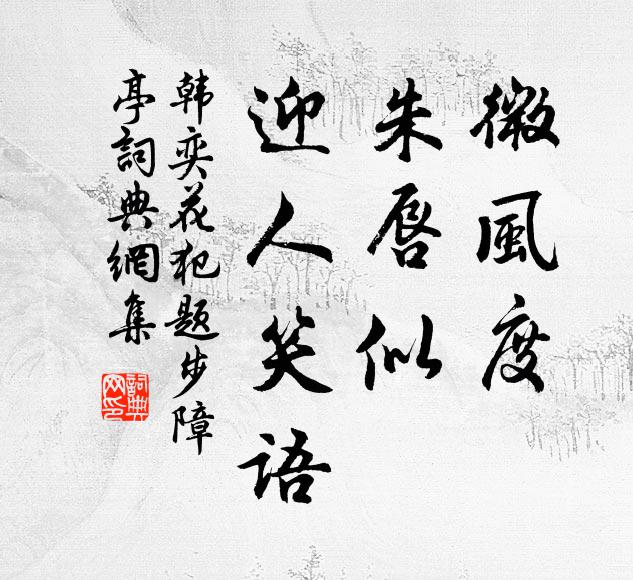 微風度
朱唇似
迎人笑語
韩奕花犯题步障
亭詞典網集
詞典
网印